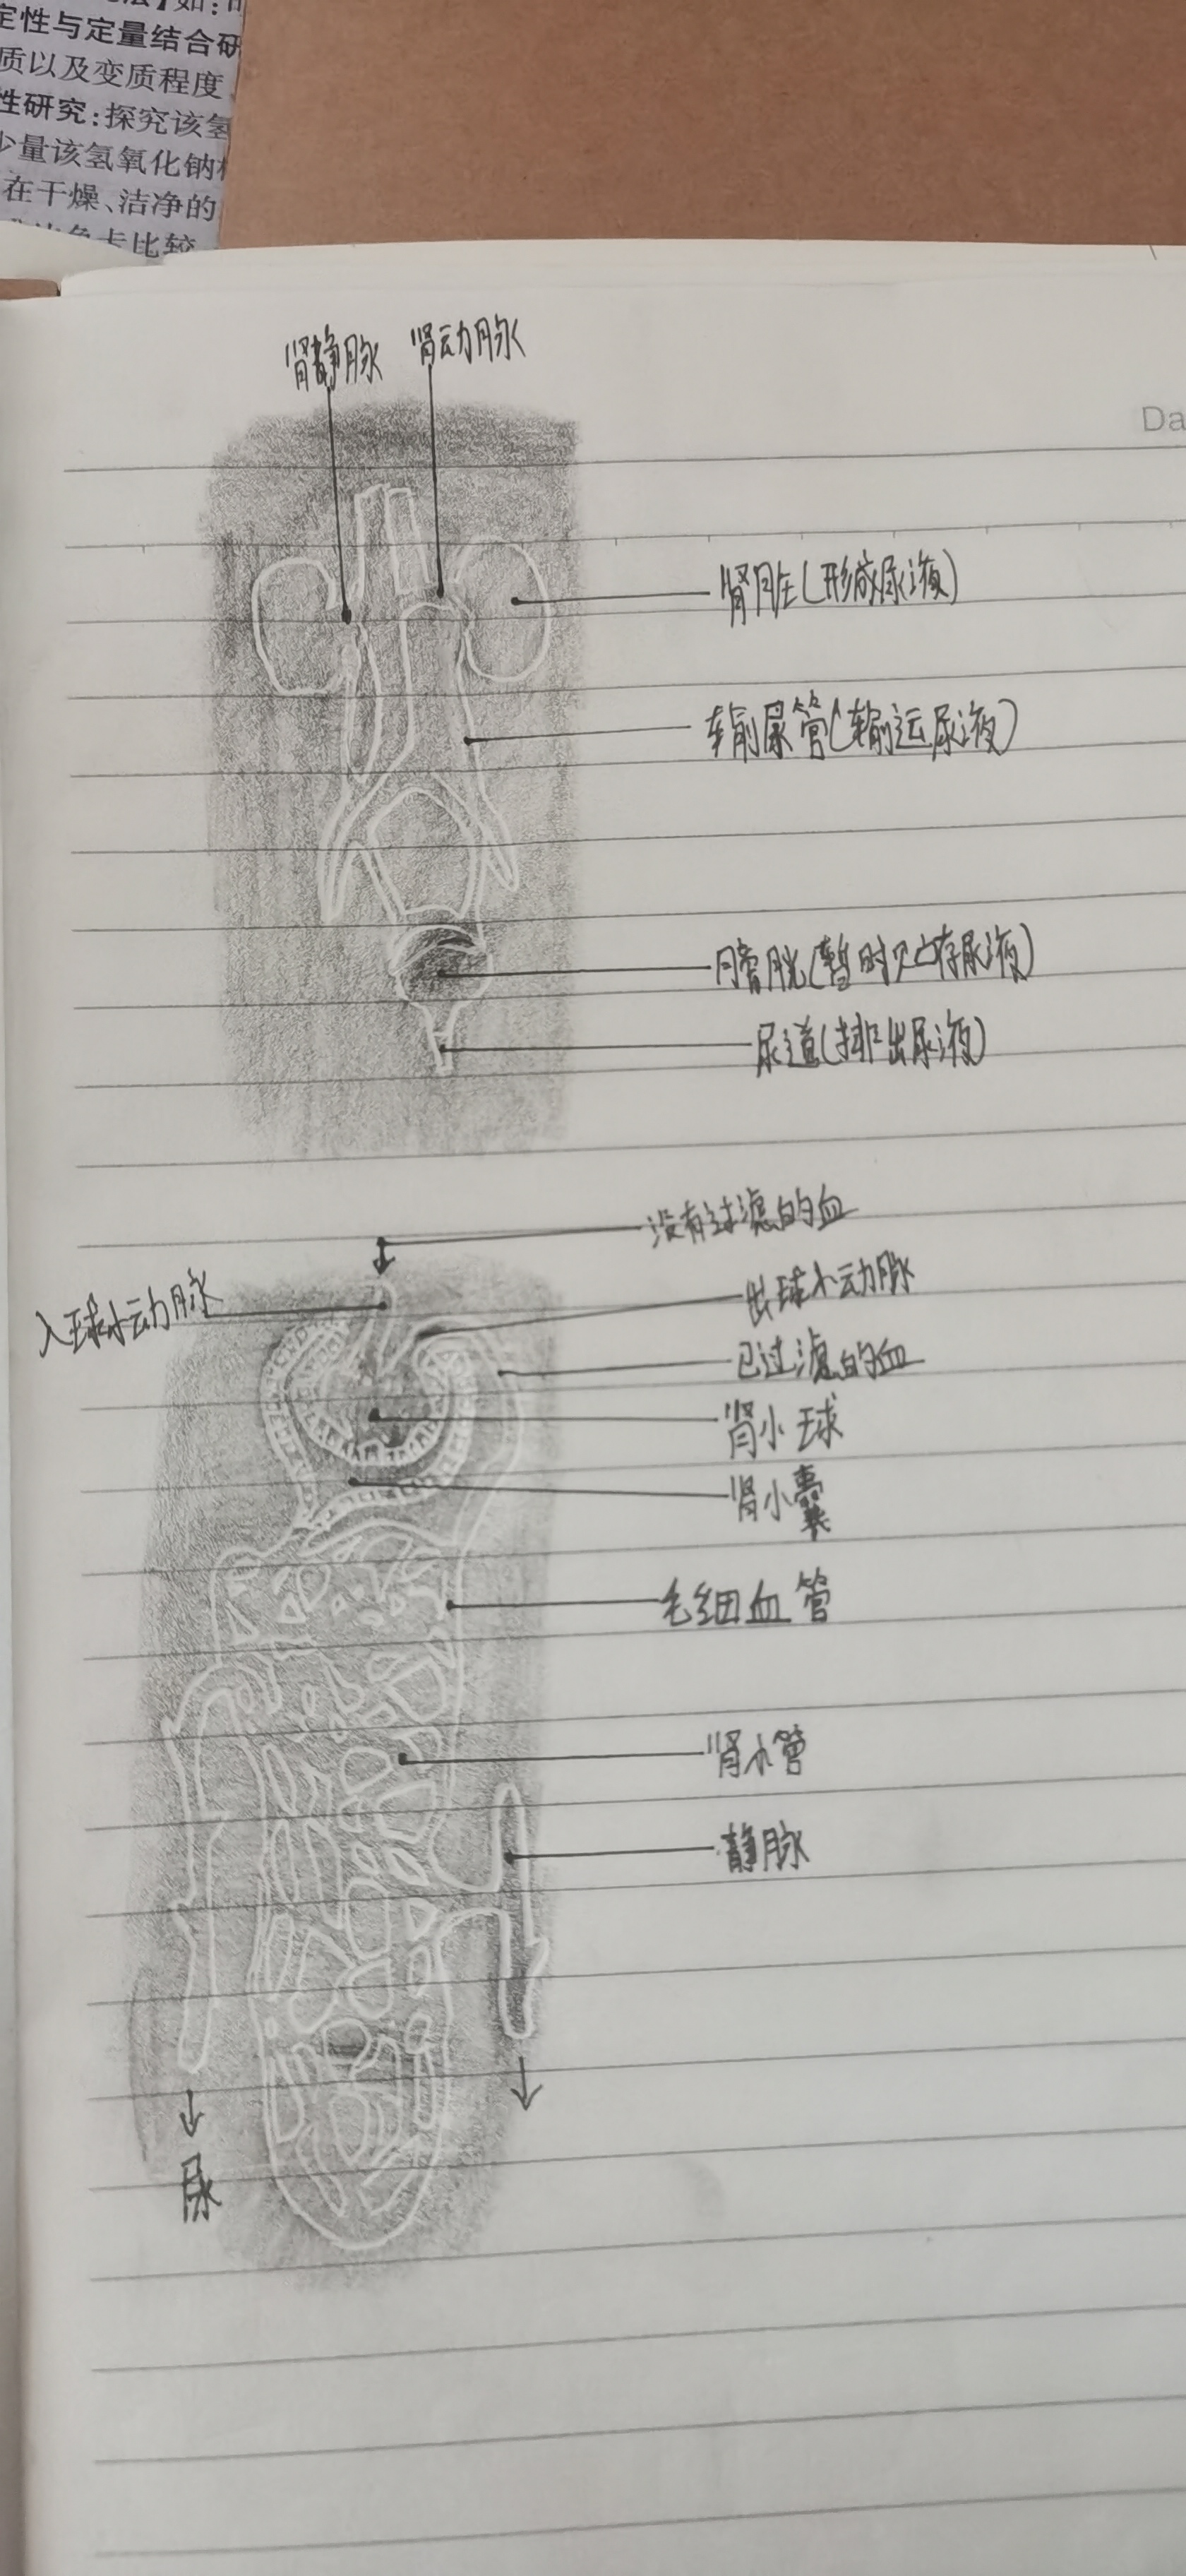 定性与定量结合研
质以及变质程度、
性研究:探究该氢
少量该氢氧化钠
在干燥、洁净的
卡比较
Da
肾静脉 肾动脉
肾脏(形成尿液)
输尿管(输运尿液)
膀胱(暂时贮存尿液)
尿道(排出尿液)
没有过滤的血
入球小动脉
出球小动脉
已过滤的血
肾小球
肾小囊
毛细血管
肾小管
静脉
脉